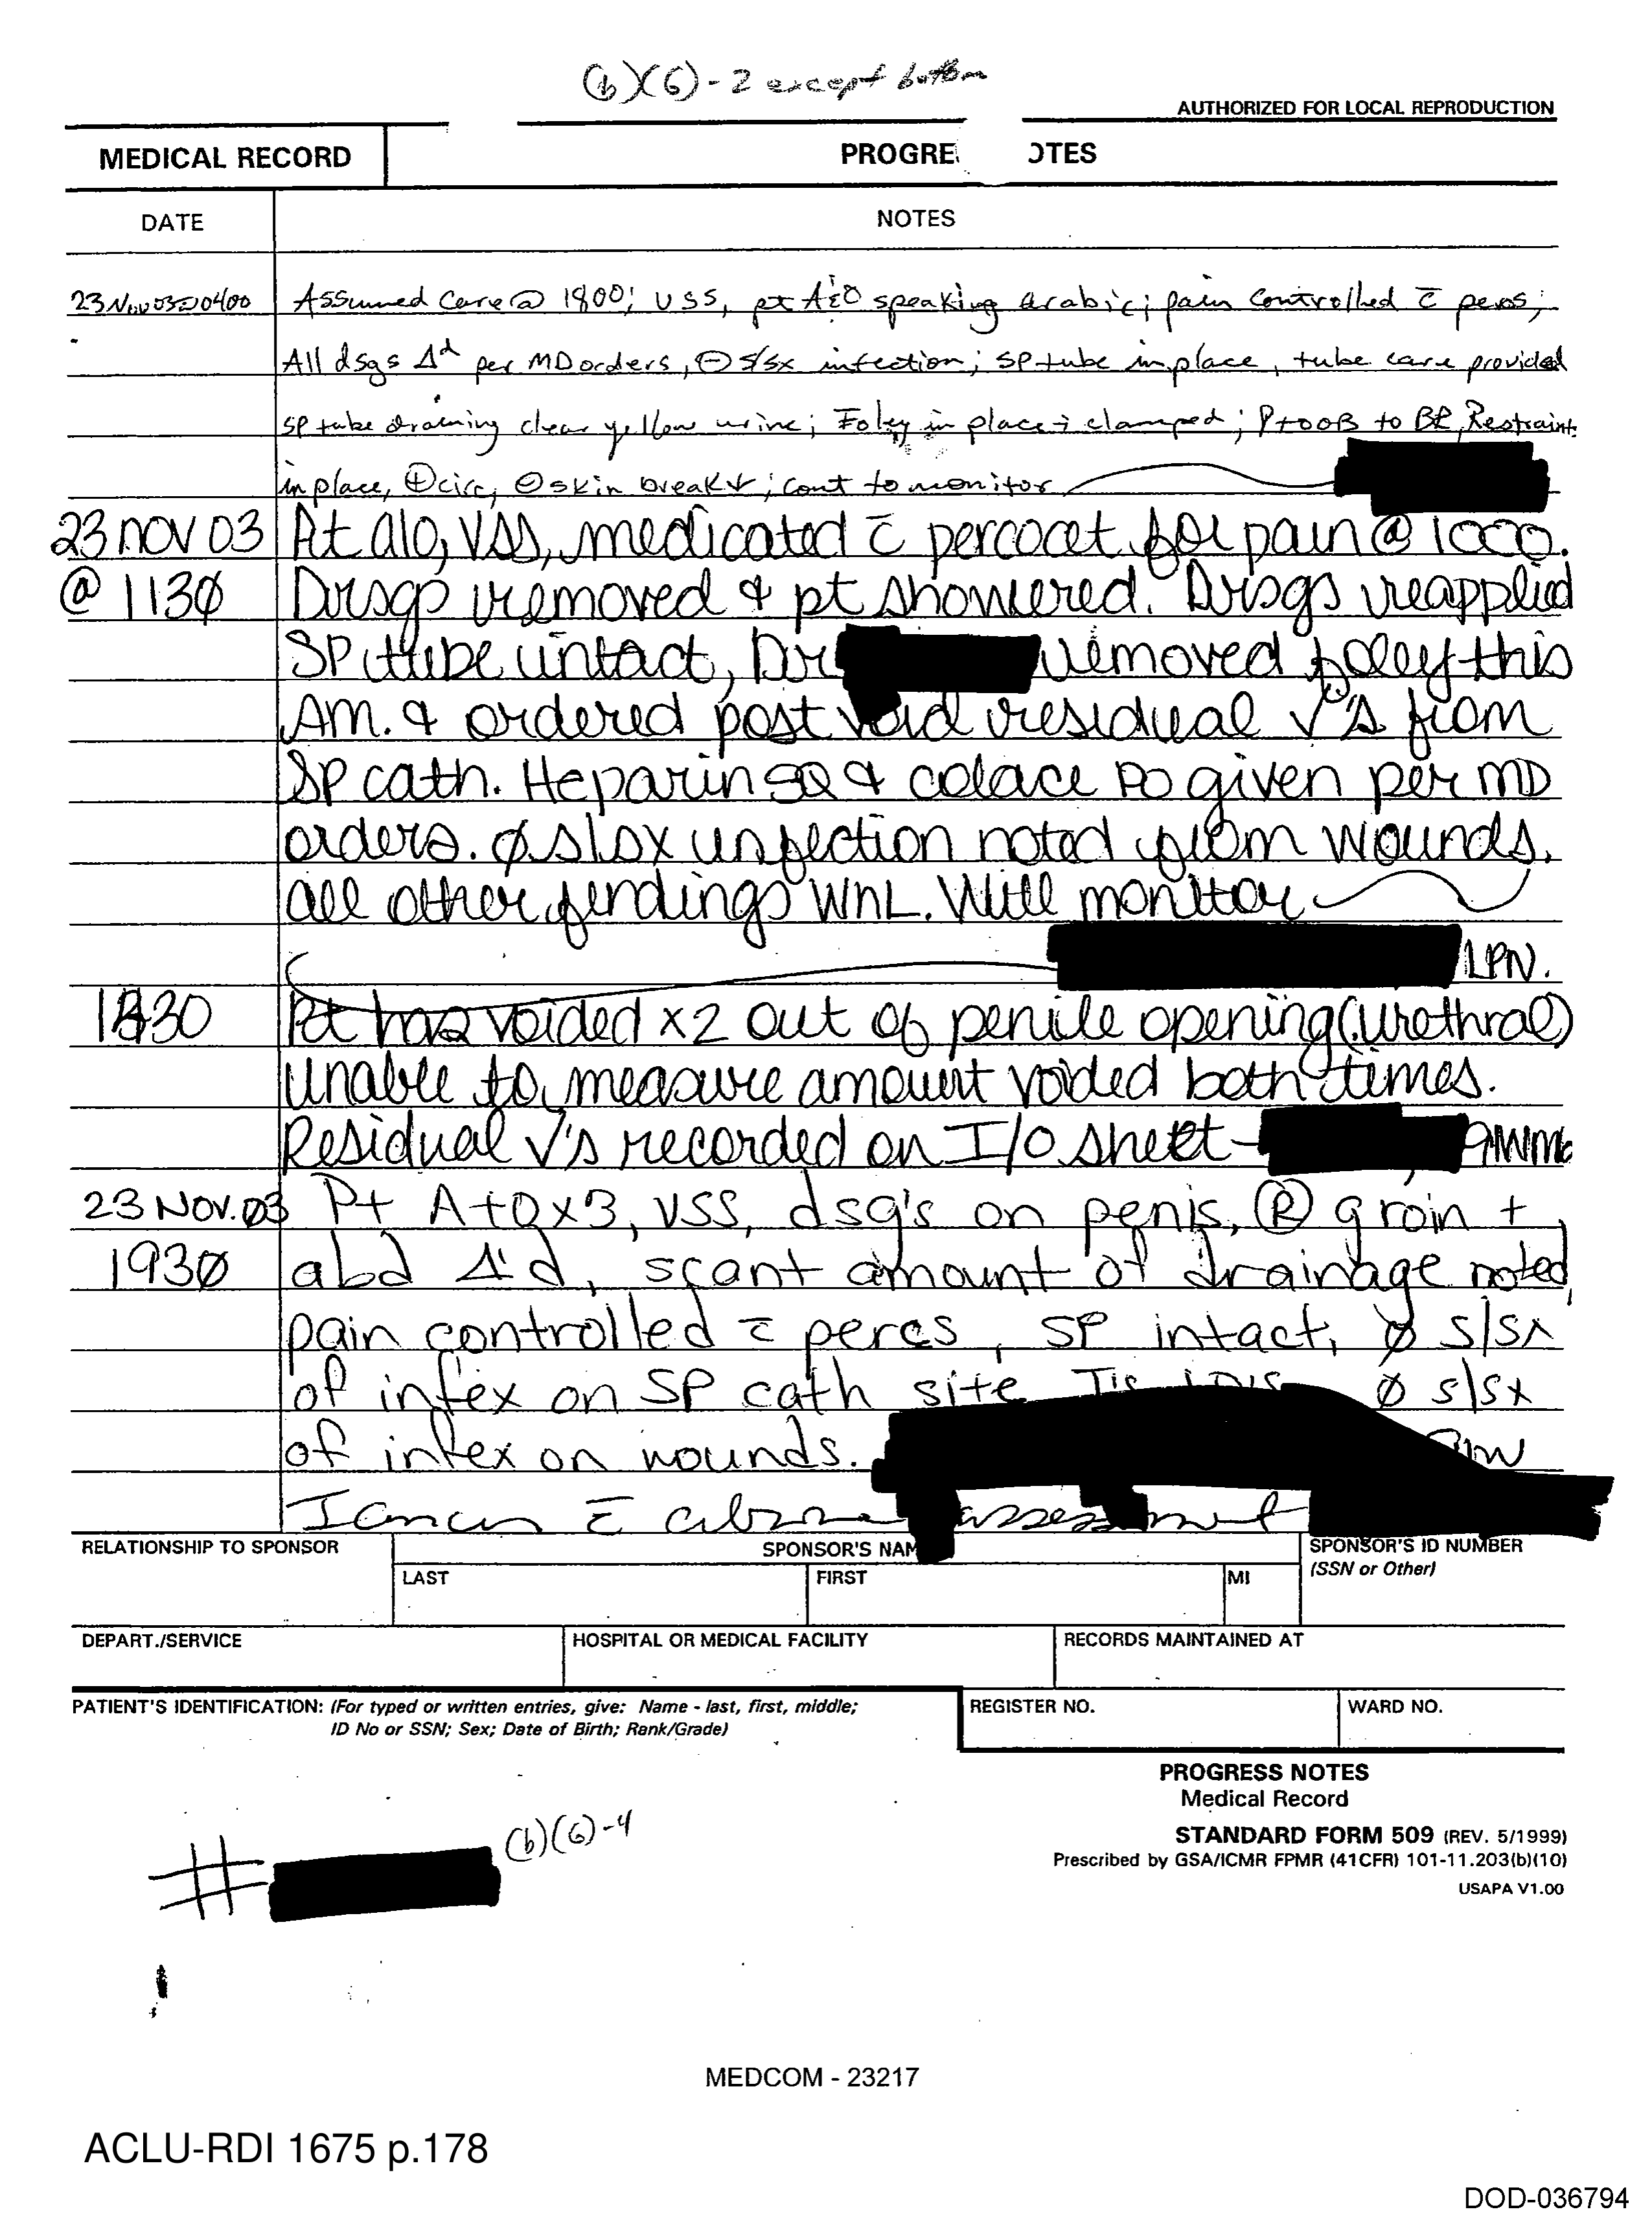 (b)(6)-2 except bottom
AUTHORIZED FOR LOCAL REPRODUCTION
MEDICAL RECORD
PROGRE OTES
DATE
NOTES
23Nov03@0400 Assumed Care @ 1800; VSS, pt A&O speaking arabic; pain controlled c̄ percs;
All dsgs Δ'd per MD orders, ⊖ s/sx infection; SP tube in place, tube care provided
SP tube draining clear yellow urine; Foley in place + clamped; Pt OOB to BR, Restraints
in place, ⊕ circ, ⊖ skin break↓; cont to monitor
23 NOV 03 Pt a/o, VSS, medicated c̄ percocet for pain @ 1000.
@ 113Ø Drsgs removed & pt showered. Drsgs reapplied
SP tube intact, Dr removed foley this
Am. & ordered post void residual √'s from
SP cath. Heparin SQ & colace PO given per MD
orders. Ø s/sx infection noted from wounds.
all other findings WNL. Will monitor
LPN.
1830 Pt has voided x2 out of penile opening (urethral)
Unable to measure amount voided both times.
Residual √'s recorded on I/O sheet -
23 NOV. Ø3 Pt A+Ox3, VSS, dsg's on penis, Ⓡ groin +
193Ø abd Δ'd, scant amount of drainage noted,
pain controlled c̄ percs, SP intact, Ø s/sx
of infex on SP cath site Ø s/sx
of infex on wounds.
c̄ assessment
RELATIONSHIP TO SPONSOR
SPONSOR'S NAM
SPONSOR'S ID NUMBER
(SSN or Other)
LAST
FIRST
MI
DEPART./SERVICE
HOSPITAL OR MEDICAL FACILITY
RECORDS MAINTAINED AT
PATIENT'S IDENTIFICATION: (For typed or written entries, give: Name - last, first, middle;
ID No or SSN; Sex; Date of Birth; Rank/Grade)
REGISTER NO.
WARD NO.
PROGRESS NOTES
Medical Record
STANDARD FORM 509 (REV. 5/1999)
Prescribed by GSA/ICMR FPMR (41CFR) 101-11.203(b)(10)
USAPA V1.00
# (b)(6)-4
MEDCOM - 23217
ACLU-RDI 1675 p.178
DOD-036794